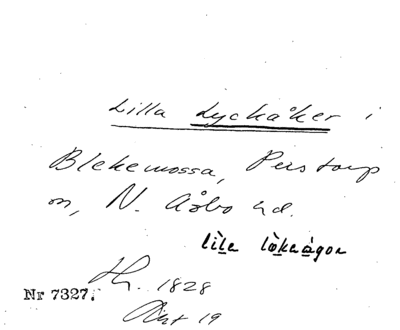 Lilla Lyckåker i
Blekemossa, Perstorp
sn, N. Åsbo hd.
lìla lòkaågor
Nr 7327. 1828
19